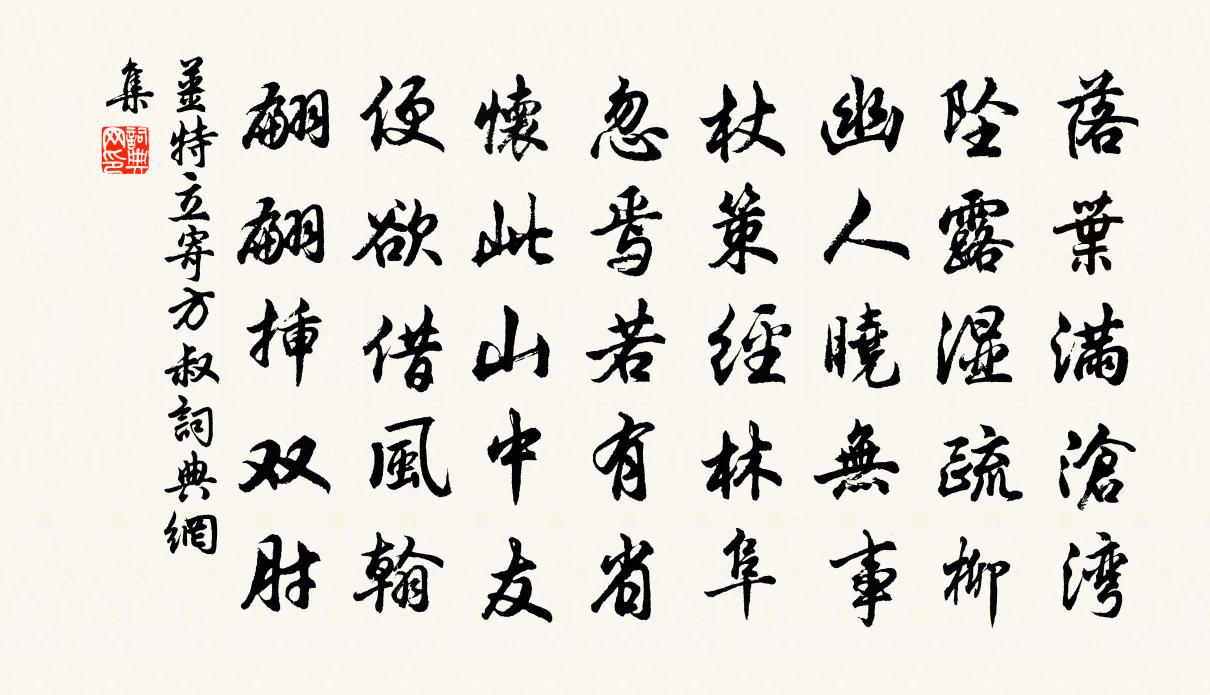 落葉满滄湾
坠露湿疏柳
幽人曉無事
杖策經林阜
忽焉若有省
懷此山中友
便欲借風翰
翩翩挿双肘
姜特立寄方叔詞典網
集
詞典
网印